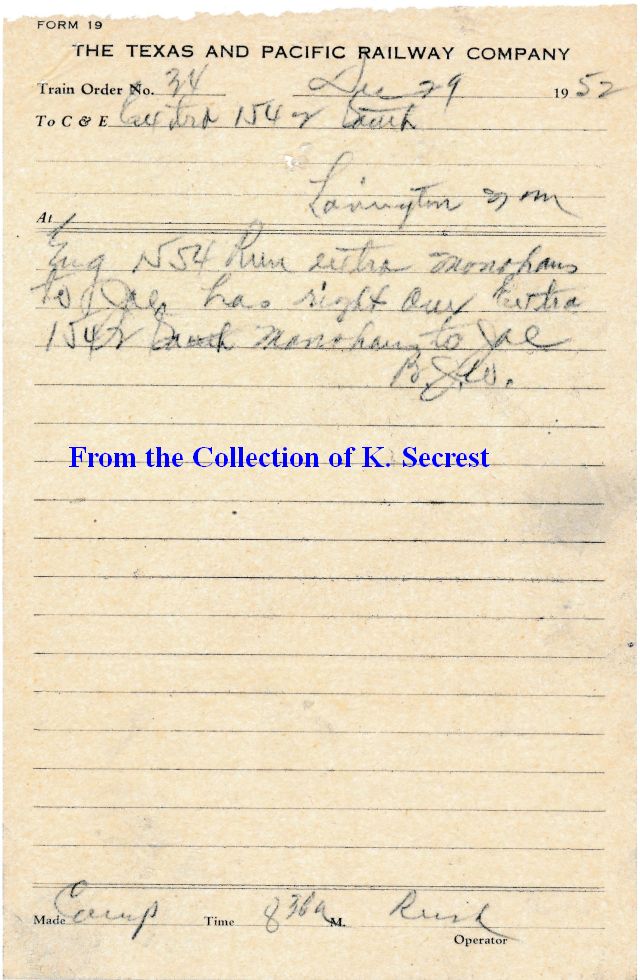 FORM 19
THE TEXAS AND PACIFIC RAILWAY COMPANY
Train Order No. 34 Dec 29 1952
To C & E Extra 1542 South
Lovington N M
At
Eng 1554 Run extra Monahans
to Jal has right over Extra
1542 South Monahans to Jal
B.J.W.
From the Collection of K. Secrest
Made Comp Time 836a M.
Operator